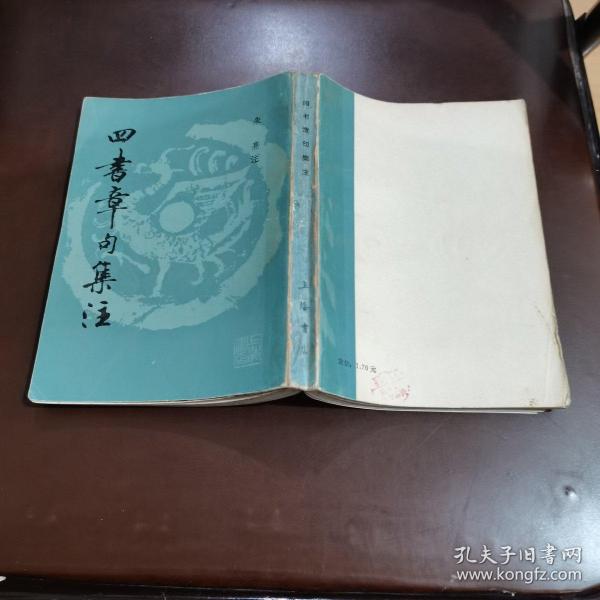 四书章句集注
朱熹注
四书章句集注
上海书店
定价：1.70元
孔夫子旧书网
www.kongfz.com